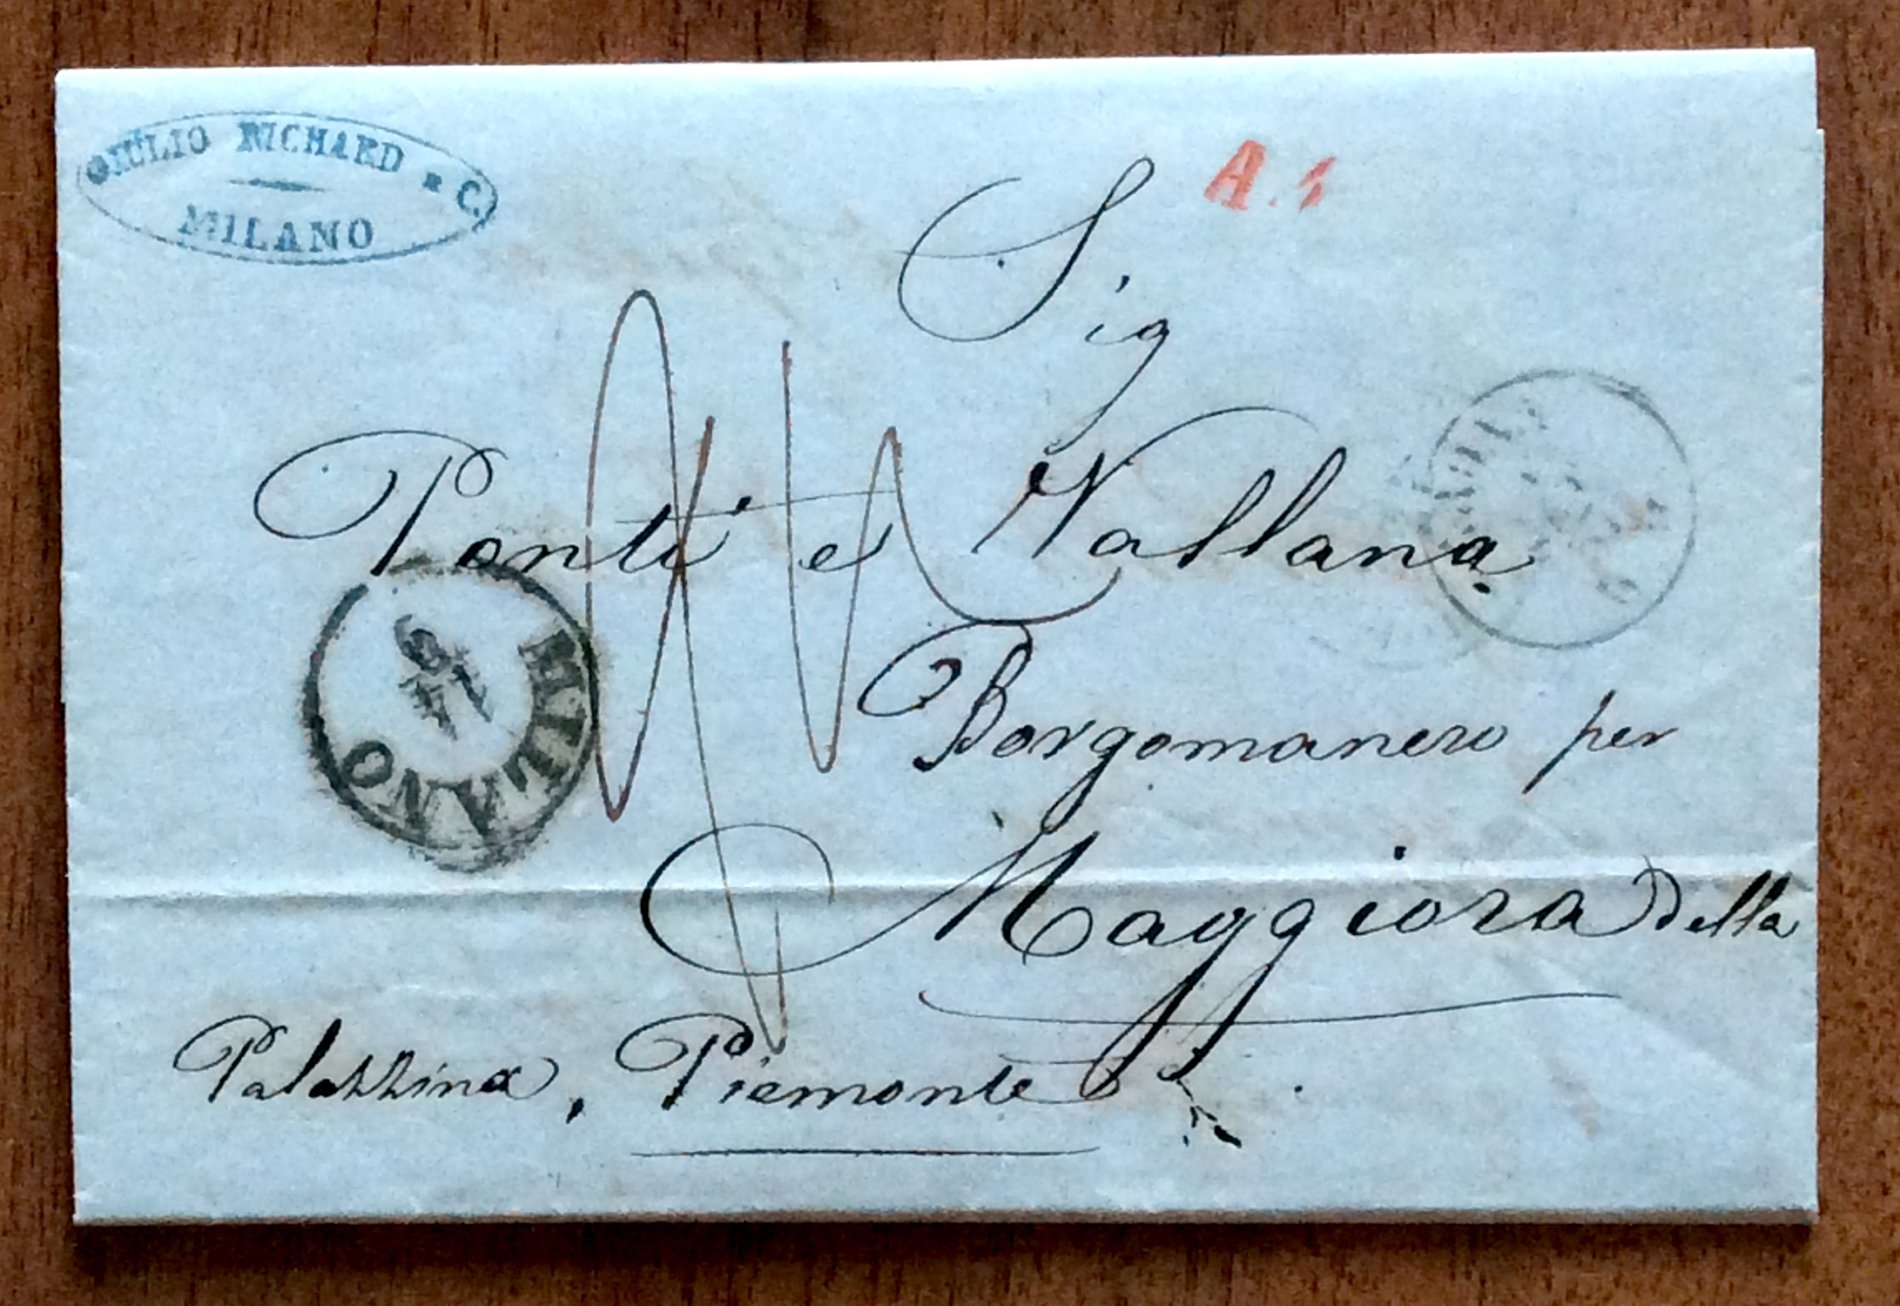 GIULIO RICHARD & C.
MILANO
A. 1
Sig
Ponti e Vallana
Borgomanero per
Maggiora Della
Palazzina, Piemonte
MILANO